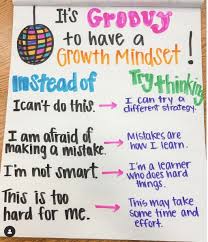 It's Groovy
to have a
Growth Mindset!
Instead of
Try thinking
I can't do this.
I can try a
different strategy.
I am afraid of
making a mistake.
Mistakes are
how I learn.
I'm not smart.
I'm a learner
who does hard
things.
This is too
hard for me.
This may take
some time and
effort.